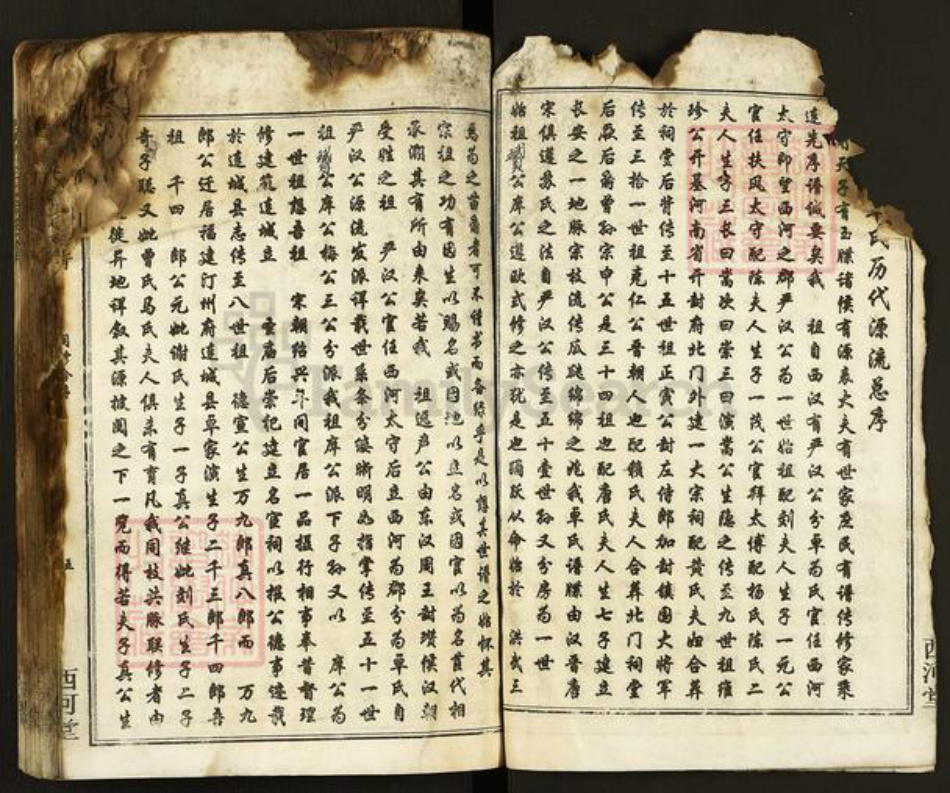 氏历代源流总序
天子有玉牒诸侯有源表大夫有世家庶民有谱传修家乘
述先序谱诚要矣我 祖自西汉有严汉公分卓为氏官任西河
太守即望西河之郡严汉公为一世始祖配刘夫人生子一元公
官任扶风太守配陈夫人生子一茂公官拜太傅配杨氏陈氏二
夫人生子三长曰嵩次曰崇三曰演嵩公生隐之传至九世祖雍
珍公开基河南省开封府北门外建一大宗祠配黄氏夫妇合葬
于祠堂后背传至十五世祖正贡公封左侍郎加封镇国大将军
传至三拾一世祖克仁公晋朝人也配赖氏夫人合葬北门祠堂
后裔后爵曾孙宗申公是三十四祖也配唐氏夫人生七子建立
长安之一地脉宗枝流传瓜瓞绵绵之兆我卓氏谱牒由汉晋唐
宋俱遵苏氏之法自严汉公传至五十壹世孙又分房为一世
始祖 公库公遵欧式修之亦犹是也 跃以命始于 洪武三
为之苗裔者可不仅书而各录乎是以想其世谱之始怀其
宗祖之功有因生以赐名或因地以立名或因官以为名莫代相
承溯其有所由来矣若我 祖远声公由东汉周王封瓒候汉朝
受姓之祖 严汉公官任西河太守后立西河为郡分为卓氏自
严汉公源流发派详载世系条分缕晰明如指掌传至五十一世
祖 公库公梅公三公分派我祖库公派下子孙又以 库公为
一世祖想吾祖 宋朝绍兴年间官居一品摄行相事奉昔督理
修建莲城立 庙后崇祀建立名宦祠以报公德事迹载
于连城县志传至八世祖 德宣公生万九郎真八郎而 万九
郎公迁居福建汀州府连城县卓家演生子二千三郎千四郎吾
祖 千四 郎公元妣谢氏生子一子真公继妣刘氏生子二子
奇子聪又妣曾氏马氏夫人俱未有育凡我同枝共脉联修者由
徙异地详叙其源披阅之下一览而得若夫子真公生
五
西河堂
西河堂